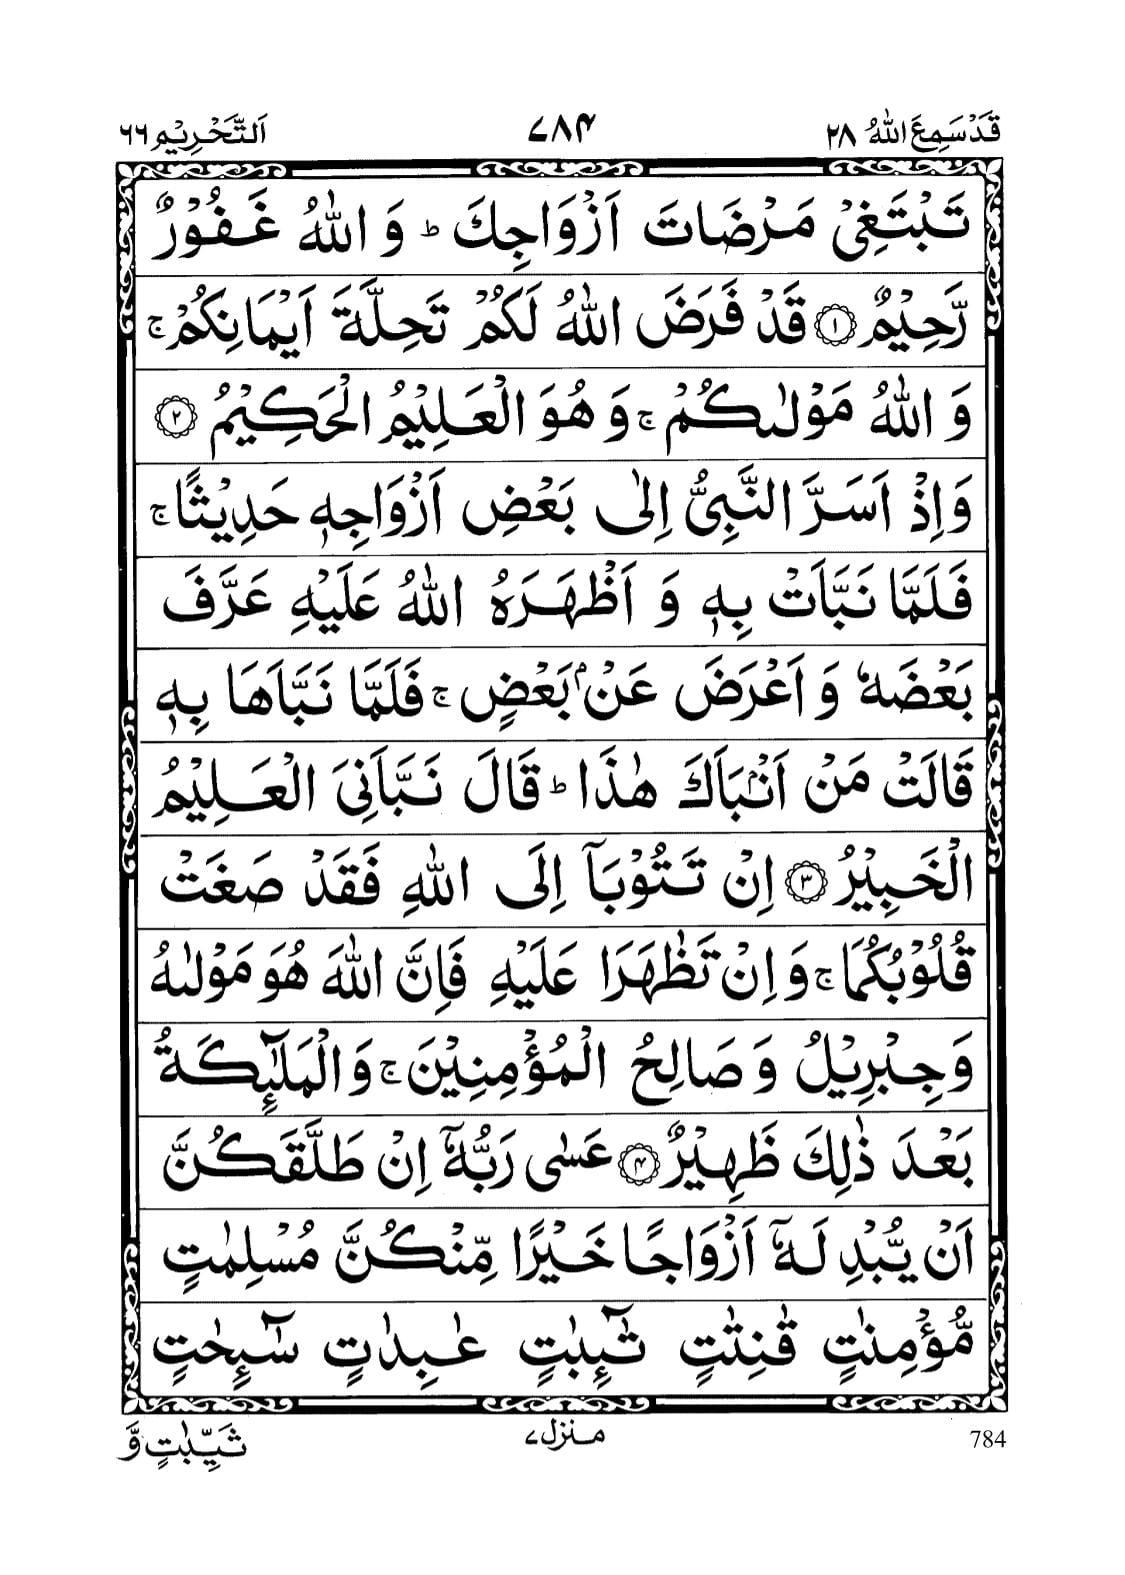 قَدْسَمِعَ اللّٰهُ ۲۸
۷۸۴
اَلتَّحْرِيْم ۶۶
تَبْتَغِىْ مَرْضَاتَ اَزْوَاجِكَ ؕ وَ اللّٰهُ غَفُوْرٌ
رَّحِيْمٌ ۝۱ قَدْ فَرَضَ اللّٰهُ لَكُمْ تَحِلَّةَ اَيْمَانِكُمْ ۚ
وَ اللّٰهُ مَوْلٰىكُمْ ۚ وَ هُوَ الْعَلِيْمُ الْحَكِيْمُ ۝۲
وَاِذْ اَسَرَّ النَّبِىُّ اِلٰى بَعْضِ اَزْوَاجِهٖ حَدِيْثًا ۚ
فَلَمَّا نَبَّاَتْ بِهٖ وَ اَظْهَرَهُ اللّٰهُ عَلَيْهِ عَرَّفَ
بَعْضَهٗ وَ اَعْرَضَ عَنْۢ بَعْضٍ ۚ فَلَمَّا نَبَّاَهَا بِهٖ
قَالَتْ مَنْ اَنْۢبَاَكَ هٰذَا ؕ قَالَ نَبَّاَنِىَ الْعَلِيْمُ
الْخَبِيْرُ ۝۳ اِنْ تَتُوْبَاۤ اِلَى اللّٰهِ فَقَدْ صَغَتْ
قُلُوْبُكُمَا ۚ وَ اِنْ تَظٰهَرَا عَلَيْهِ فَاِنَّ اللّٰهَ هُوَ مَوْلٰىهُ
وَ جِبْرِيْلُ وَ صَالِحُ الْمُؤْمِنِيْنَ ۚ وَ الْمَلٰٓئِكَةُ
بَعْدَ ذٰلِكَ ظَهِيْرٌ ۝۴ عَسٰى رَبُّهٗۤ اِنْ طَلَّقَكُنَّ
اَنْ يُّبْدِلَهٗۤ اَزْوَاجًا خَيْرًا مِّنْكُنَّ مُسْلِمٰتٍ
مُّؤْمِنٰتٍ قٰنِتٰتٍ تٰٓئِبٰتٍ عٰبِدٰتٍ سٰٓئِحٰتٍ
784
منزل ۷
ثَيِّبٰتٍ وَّ